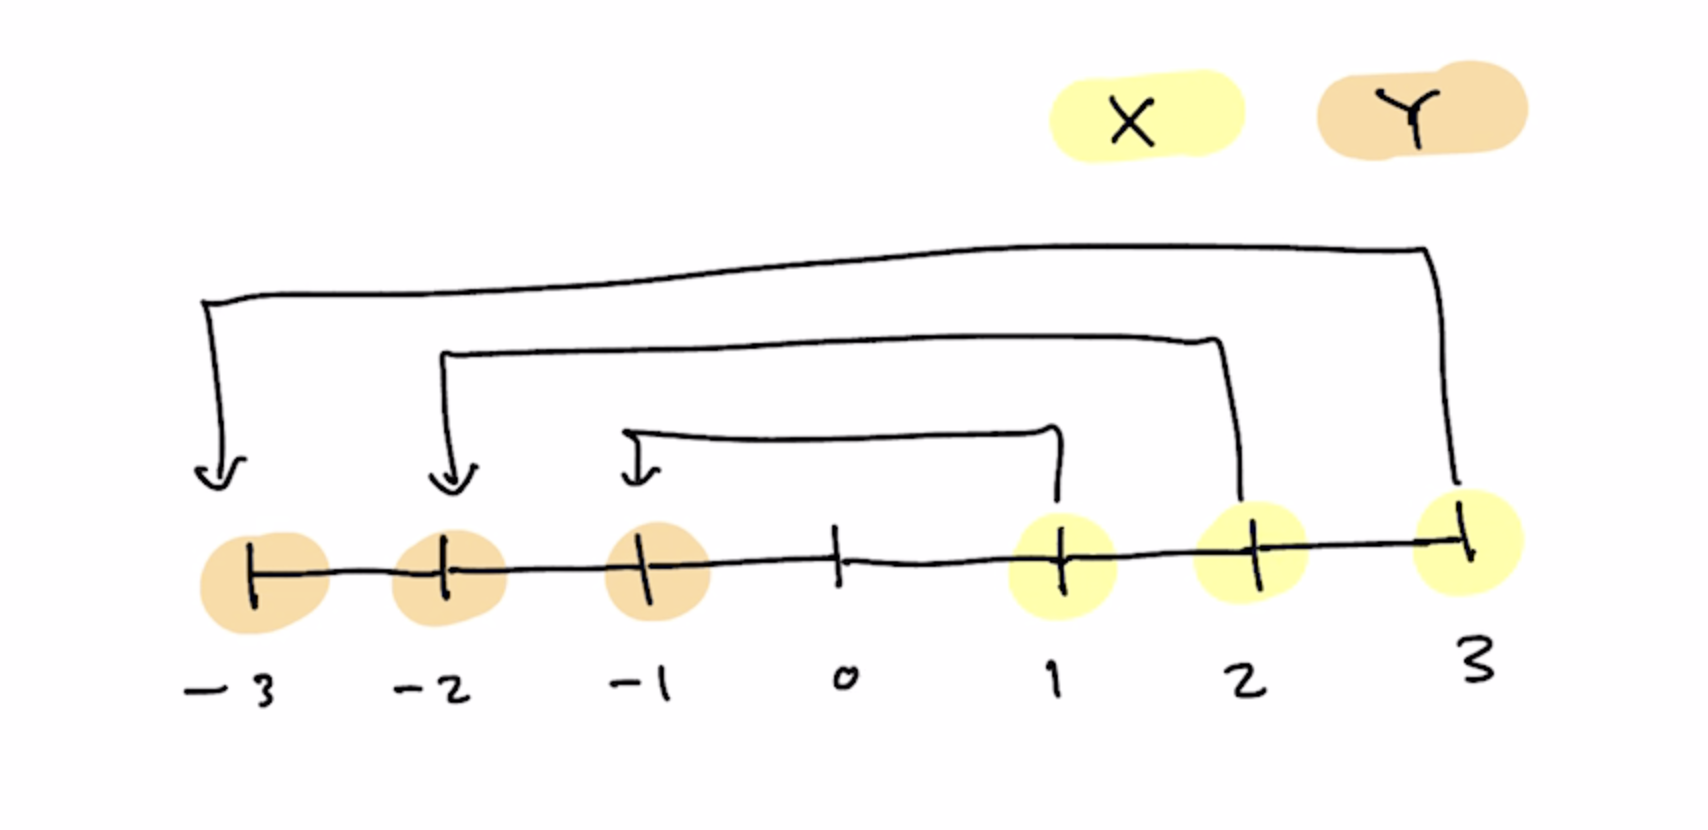 X Y
-3 -2 -1 0 1 2 3